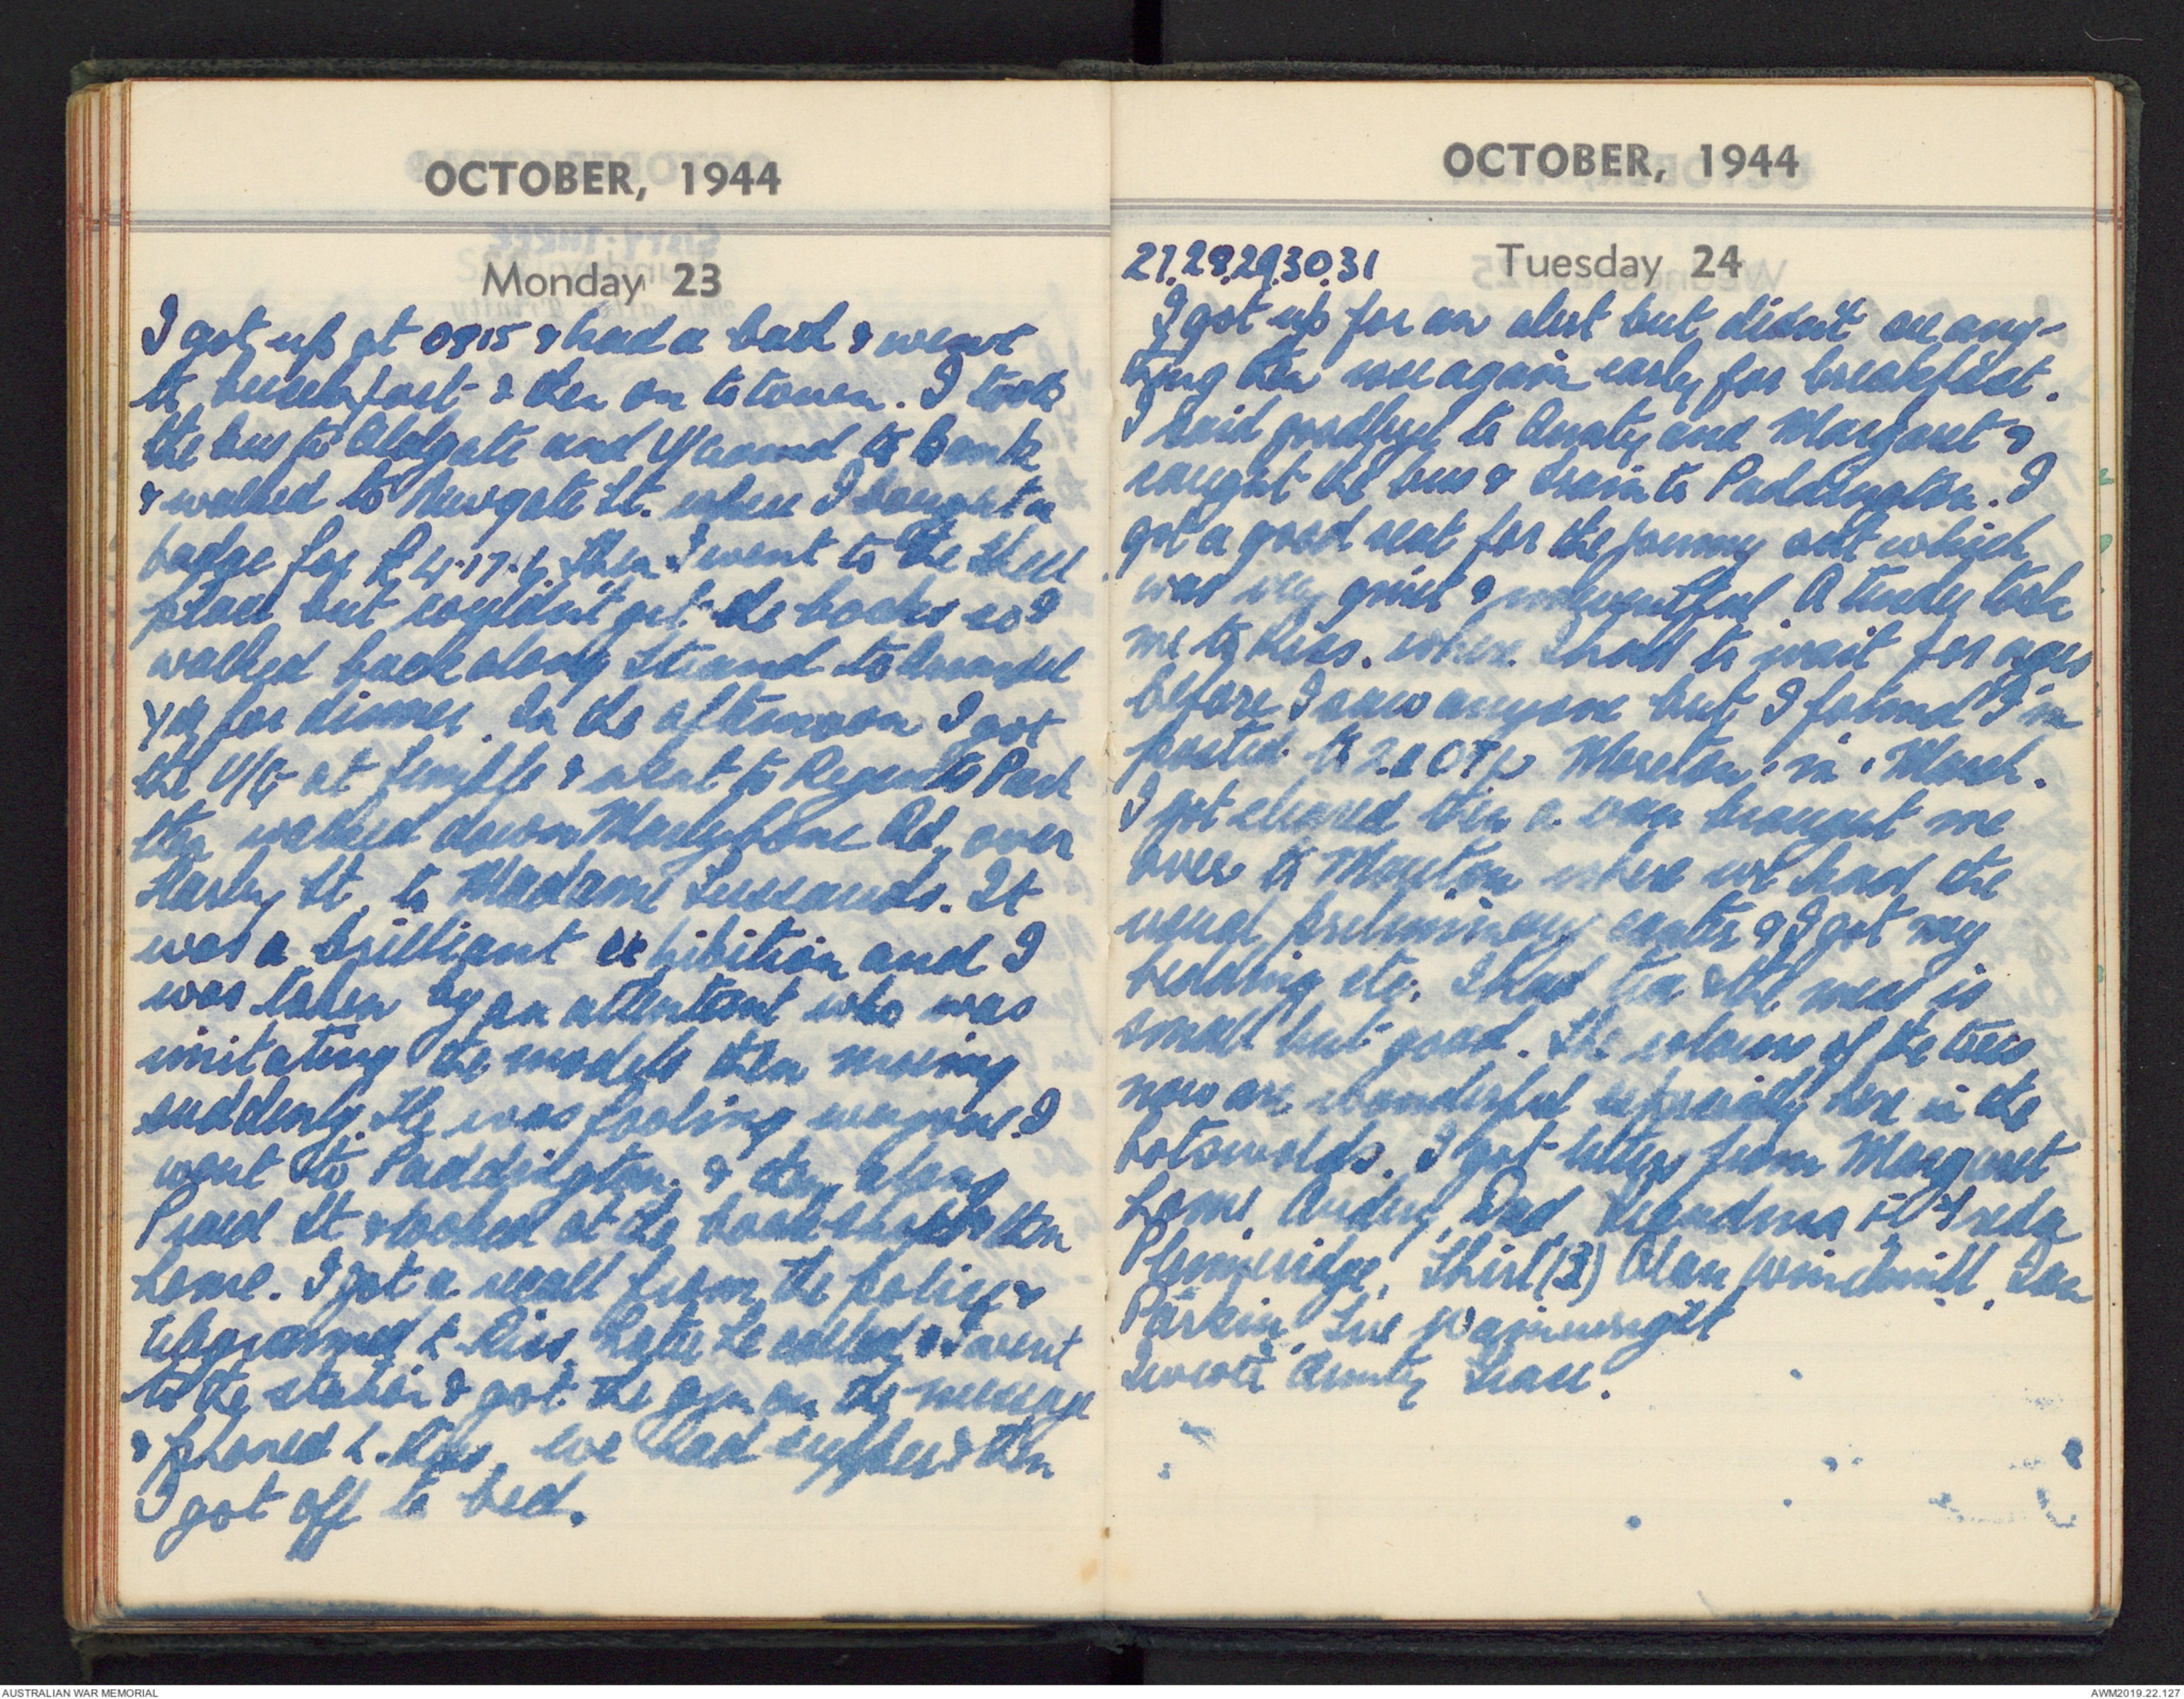 OCTOBER, 1944
Monday 23
I got up at 0815 & had a bath & went
to breakfast & then on to town. I took
the bus to Aldgate and U/ground to Bank
& walked to Newgate St. where I bought a
badge for £4.17.6. Then I went to the Shell
place but couldn't get the books so I
walked back along Strand to
for dinner. In the afternoon I got
the U/G at Temple & went to Regents Park
then walked down Marylebone Rd, over
Harley St. to Madame Tussauds. It
was a brilliant exhibition and I
was taken by an attentant who was
imitating the models then moving
suddenly. He was fooling everyone. I
went to Paddington & then along
Praed St & looked at the bookshops & then
home. I got a recall from the police &
telegrammed Later he called & I went
to the station & got the gen on the message
& phoned we had supper & then
I got off to bed.
OCTOBER, 1944
27.28.29.30.31
Tuesday 24
I got up for an alert but didn't see any-
thing then was again early for breakfast.
I said goodbye to Aunty and Margaret &
caught the bus & train to Paddington. I
got a good seat for the journey out which
was very quiet & uneventful. A tender took
me to where I had to wait for ages
before I saw anyone but I found I'm
posted to 21 OTU Moreton in Marsh.
I got cleared then a van brought me
over to Moreton where we had the
usual preliminary & I got my
bedding etc. I had tea & the mess is
small but good. The colours of the trees
now are wonderful especially here in the
Cotswolds. I got letters from Margaret
home, Audrey, Dad, Grandma Freda
Shirl (3) Alan Windmill, Ian
Parkin, Wainwright
I wrote Aunty
AUSTRALIAN WAR MEMORIAL
AWM2019.22.127